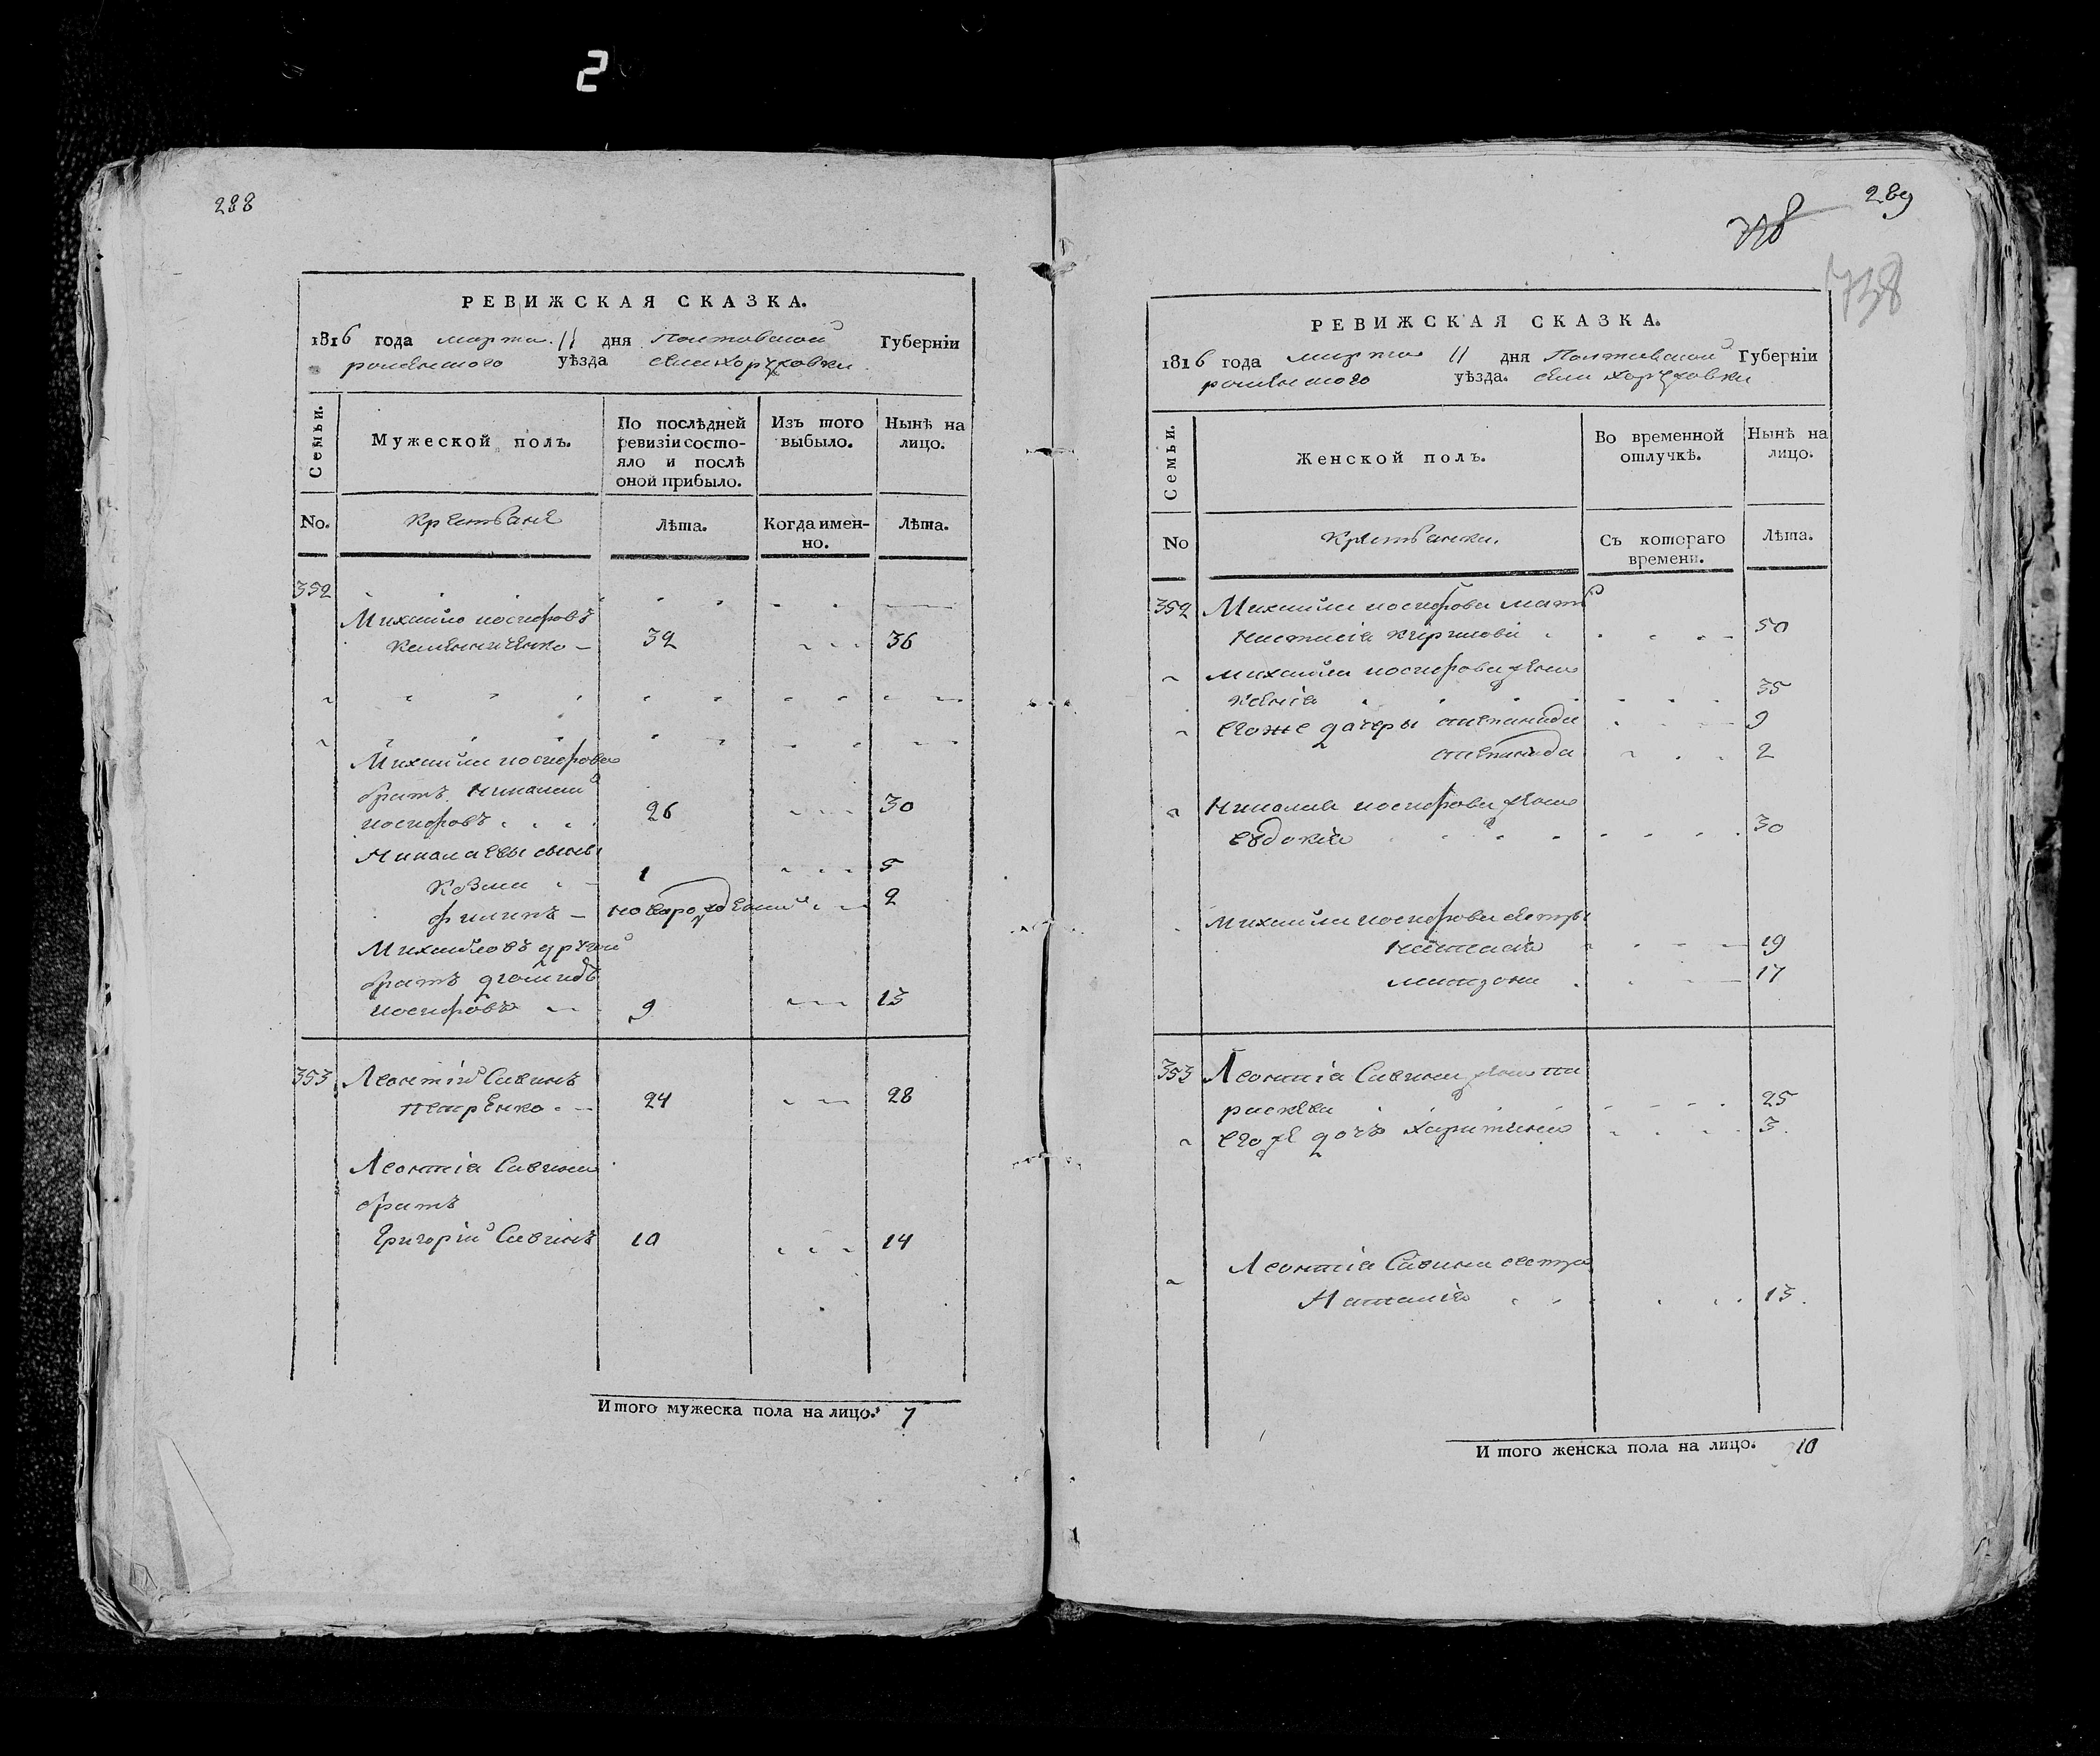 2
288
РЕВИЖСКАЯ СКАЗКА.
1816 года марта 11 дня Полтавской Губерніи
роменского уѣзда села Хоружовки
Семьи.
Мужеской полъ.
По послѣдней ревизіи состо-
яло и послѣ
оной прибыло.
Изъ того
выбыло.
Нынѣ на
лицо.
No.
Крестьяне
Лѣта.
Когда имен-
но.
Лѣта.
352
Михайло иосифовъ
32 36
Михайла иосифова
братъ Николай
иосифовъ 26 30
Николаевы сыны
Козма 1 5
филипъ новорожденный 2
Михайловъ другой
братъ
иосифовъ 9 13
353 Леонтій Савинъ
петренко 24 28
Леонтія Савина
братъ
Григорій Савинъ 10 14
Итого мужеска пола на лицо. 7
289
738
РЕВИЖСКАЯ СКАЗКА.
1816 года марта 11 дня Полтавской Губерніи
роменского уѣзда. села Хоружовки
Семьи.
Женской полъ.
Во временной
отлучкѣ.
Нынѣ на
лицо.
No
Крестьянки.
Съ котораго
времени.
Лѣта.
352 Михайла иосифова мать
Настасія кирилова 50
михайла иосифова жена
Ксенія 35
егоже дочеры степанида 9
степанида 2
Николая иосифова жена
евдокія 30
Михайла иосифова сестры
19
17
353 Леонтія Савина жена па
раскева 25
его же дочь Харитина 3
Леонтія Савина сестра
Наталія 13
И того женска пола на лицо. 10